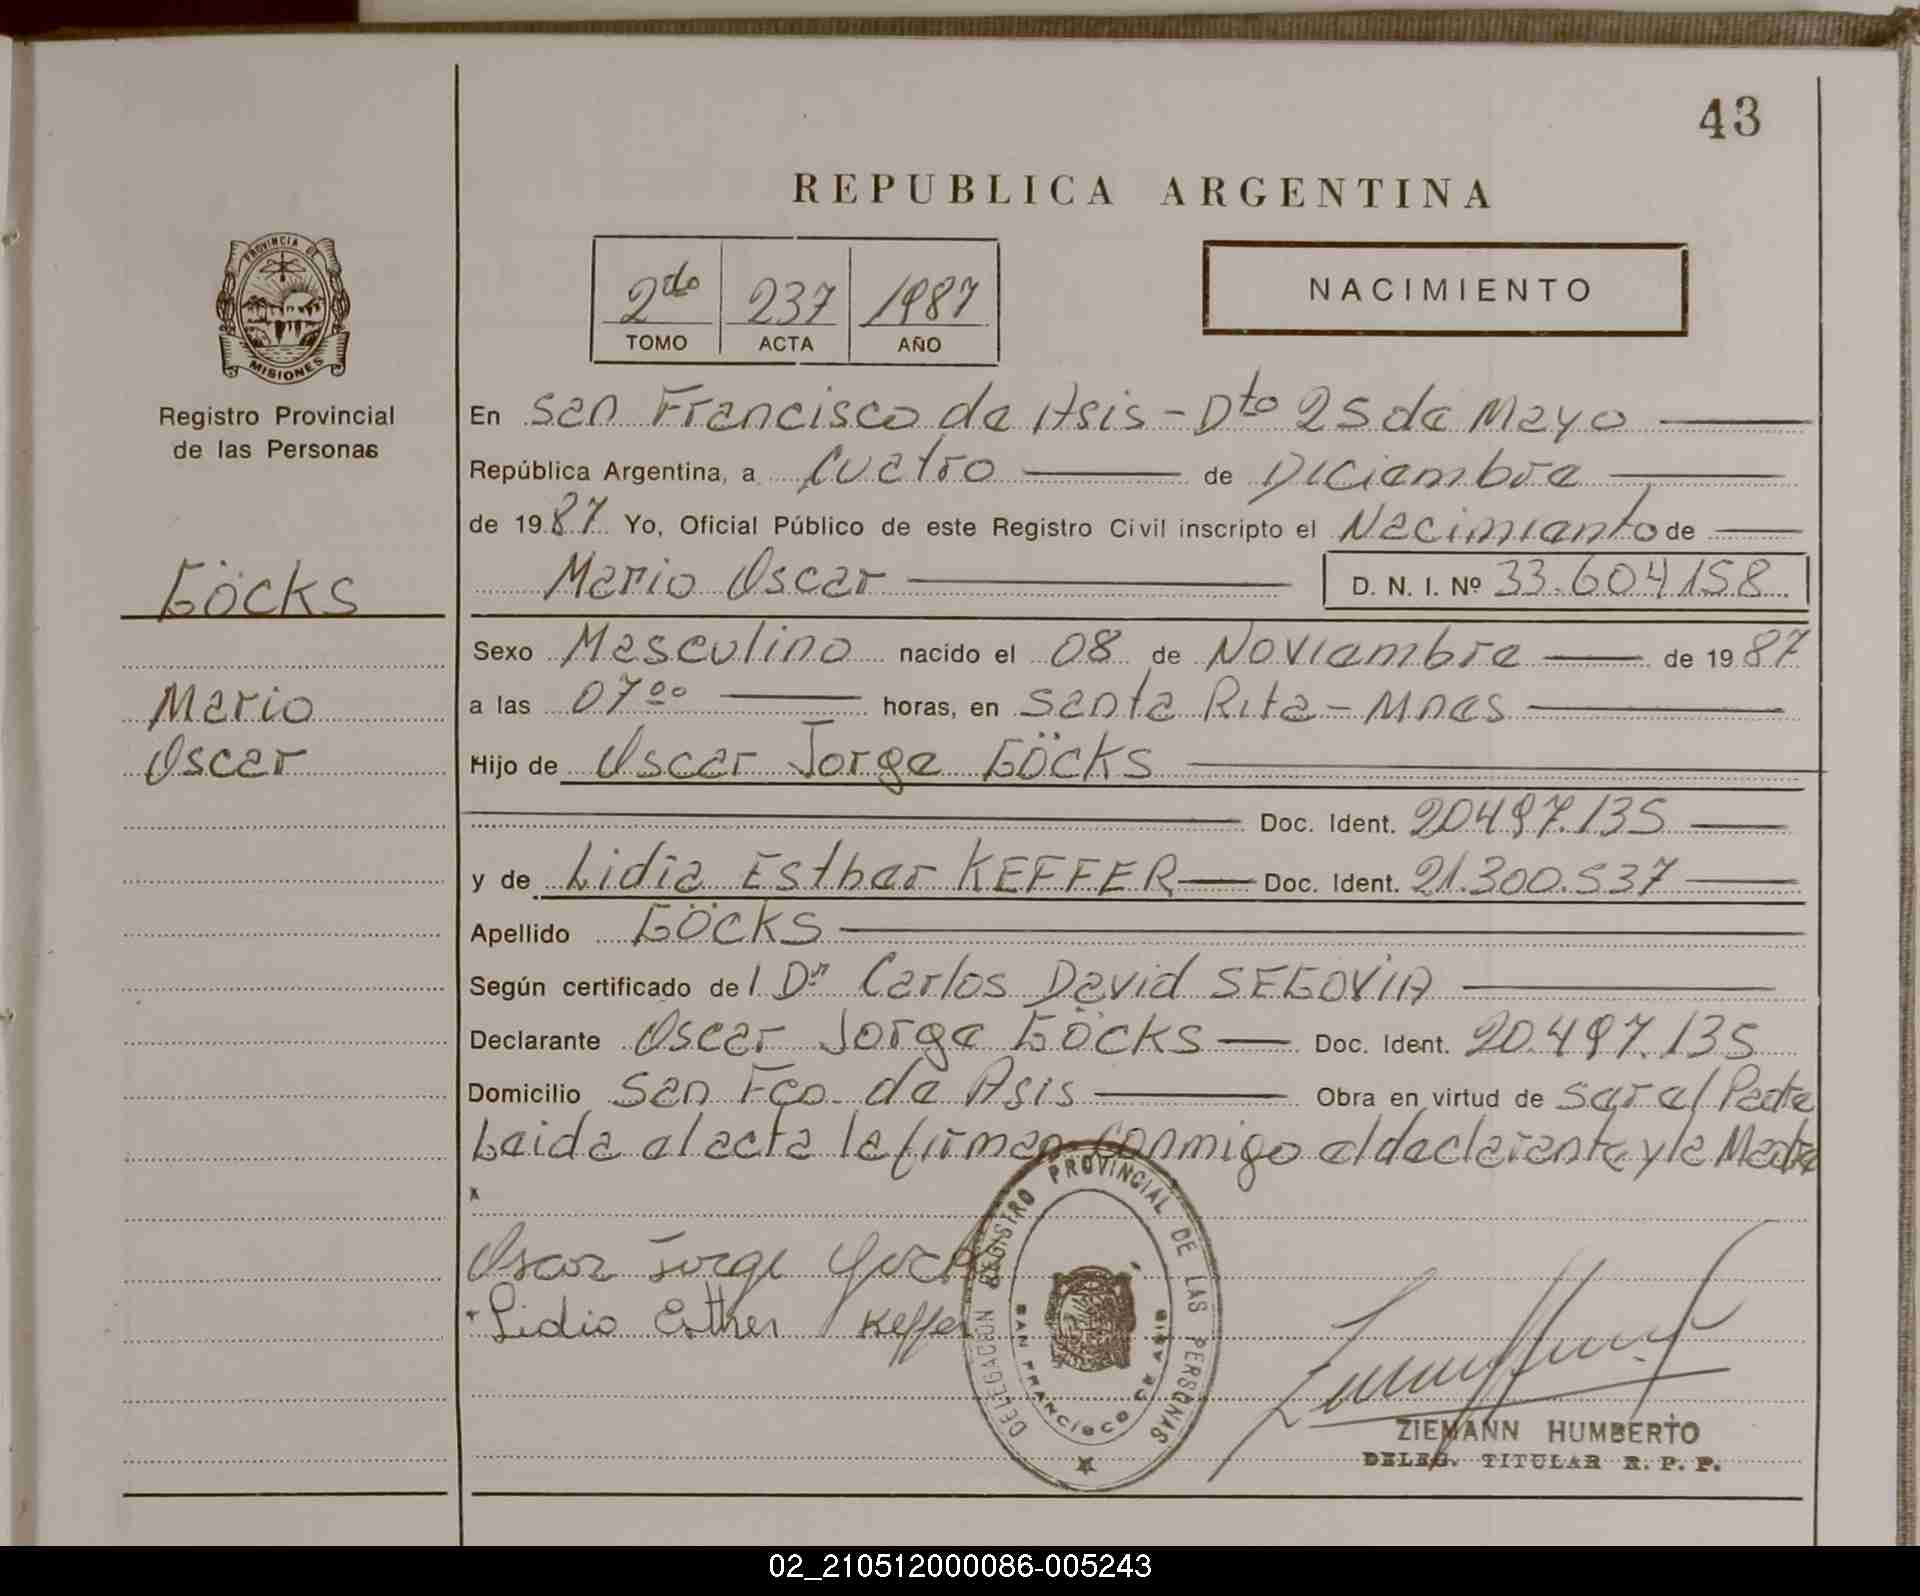 43
REPUBLICA ARGENTINA
2do 237 1987
TOMO ACTA AÑO
NACIMIENTO
PROVINCIA DE
MISIONES
Registro Provincial
de las Personas
Göcks
Mario
Oscar
En San Francisco de Asis - Dto 25 de Mayo
República Argentina, a Cuatro de Diciembre
de 1987 Yo, Oficial Público de este Registro Civil inscripto el Nacimiento de
Mario Oscar D. N. I. Nº 33.604158
Sexo Masculino nacido el 08 de Noviembre de 1987
a las 07 00 horas, en Santa Rita - Mnes
Hijo de Oscar Jorge Göcks
Doc. Ident. 20497.135
y de Lidia Esther KEFFER Doc. Ident. 21.300.537
Apellido Göcks
Según certificado del Dr Carlos David SEGOVIA
Declarante Oscar Jorge Göcks Doc. Ident. 20.497.135
Domicilio San Fco. de Asis Obra en virtud de ser el Padre
Leida el acta la firman conmigo el declarante y la Madre
x
Oscar Jorge Göcks
Lidia Esther Keffer
DELEGACION REGISTRO PROVINCIAL DE LAS PERSONAS
SAN FRANCISCO DE ASIS
ZIEMANN HUMBERTO
DELEG. TITULAR R. P. P.
02_210512000086-005243